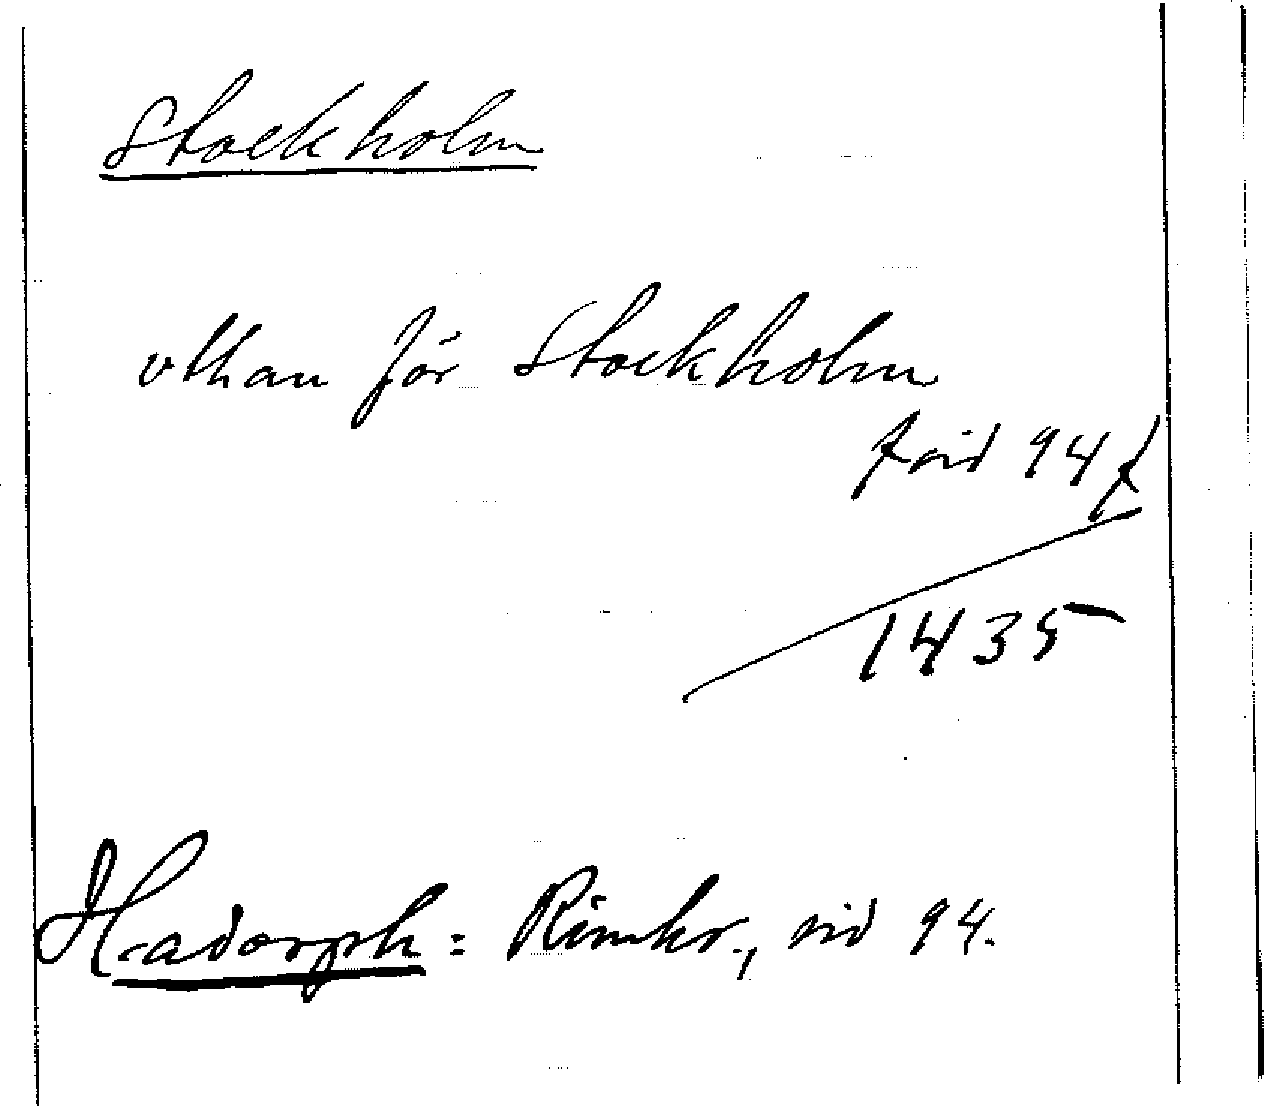 Stockholm
vthan för Stockholm
/ sid 94 /
1435
Hadorph: Rimkr., sid 94.